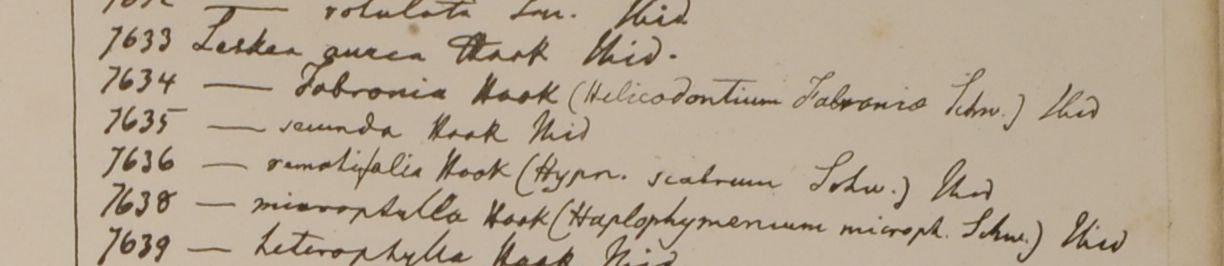 — rotulata Sw. Ibid
7633 Leskea aurea Hook Ibid.
7634 — Fabronia Hook (Helicodontium Fabronia Schw.) Ibid
7635 — secunda Hook Ibid
7636 — remotifolia Hook (Hypn. scabrum Schw.) Ibid
7638 — microphylla Hook (Haplohymenium microph. Schw.) Ibid
7639 — heterophylla Hook Ibid